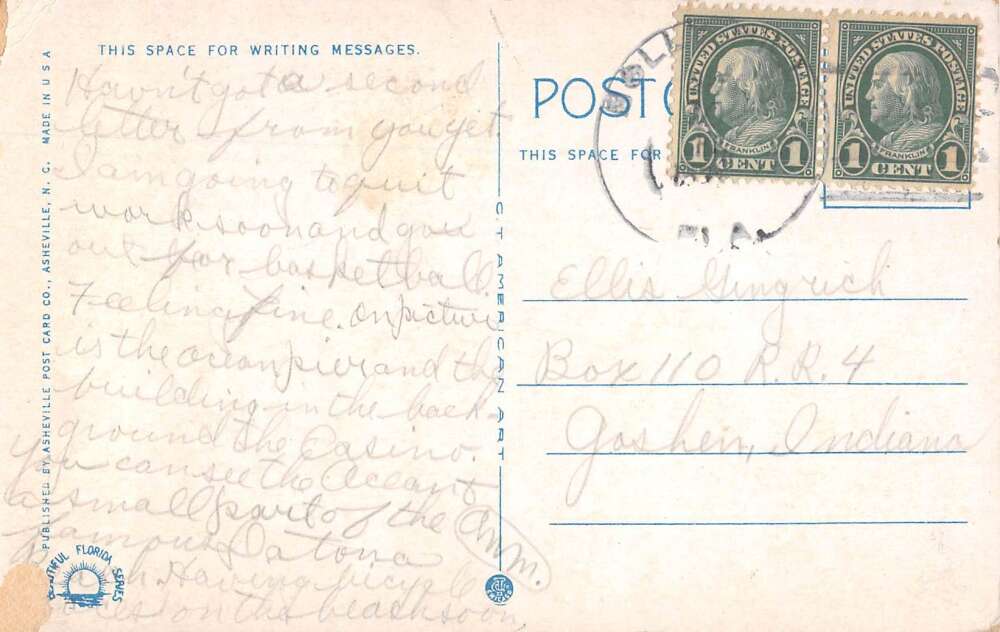 THIS SPACE FOR WRITING MESSAGES.
Havn't got a second
letter from you yet.
I am going to quit
work soon and go
out for basketball.
Feeling fine. On picture
is the ocean pier and the
building in the back-
ground the Casino.
You can see the Ocean &
a small part of the
famous Datona
Having bicycle
on the beach soon
Amm.
PUBLISHED BY ASHEVILLE POST CARD CO., ASHEVILLE, N. C. MADE IN U S A
BEAUTIFUL FLORIDA SERIES
C.T. AMERICAN ART
CHICAGO
POST
THIS SPACE FOR
FLA
UNITED STATES POSTAGE
FRANKLIN
1 CENT 1
UNITED STATES POSTAGE
FRANKLIN
1 CENT 1
Ellis Gingrich
Box 110 R.R. 4
Goshen, Indiana